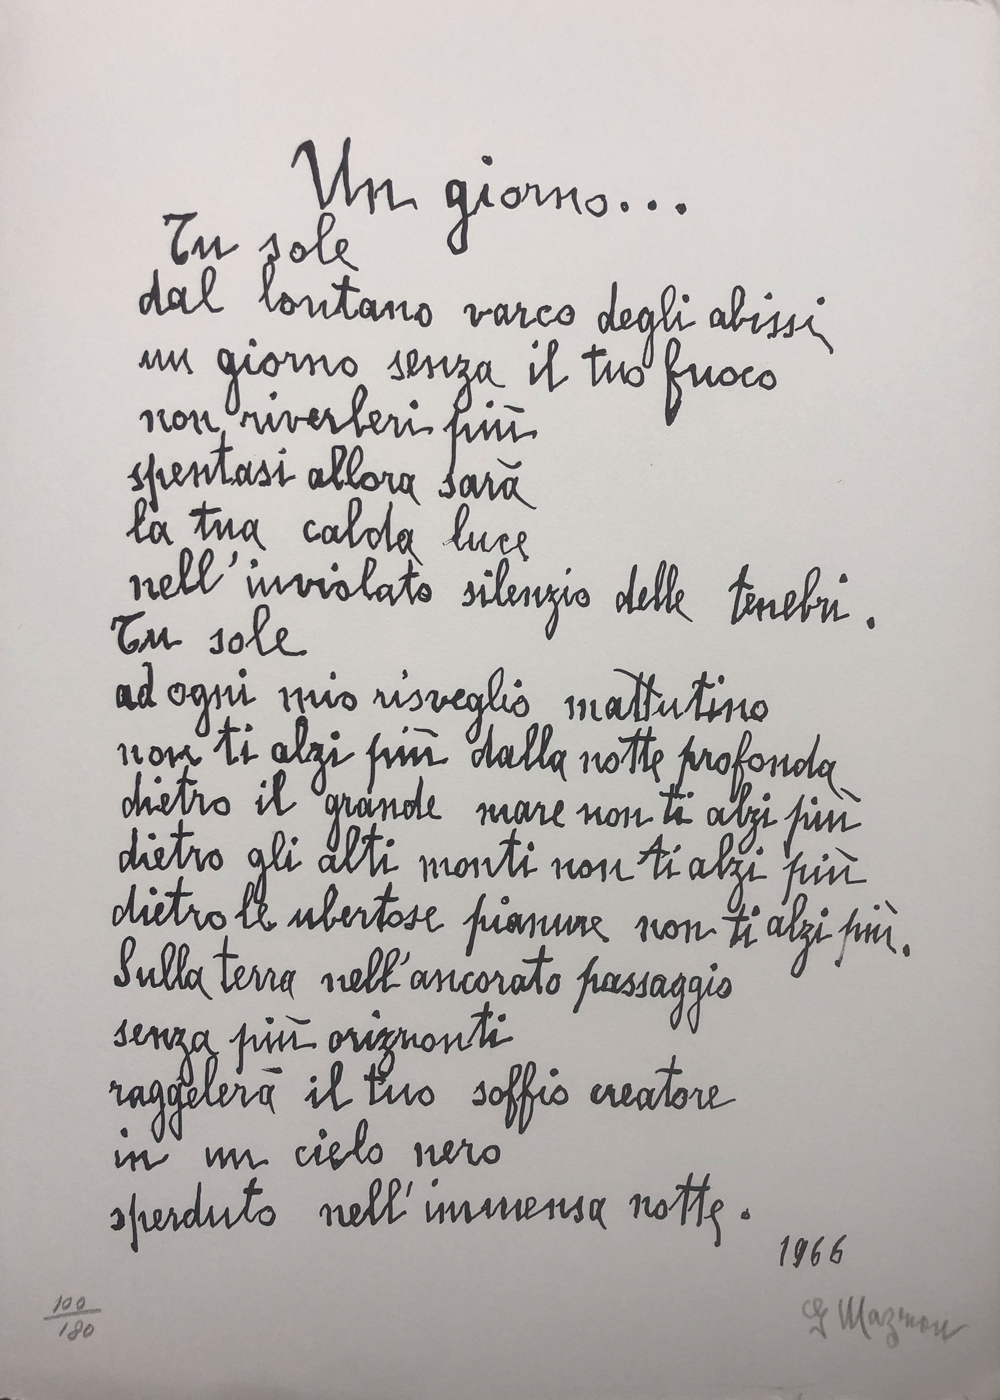 Un giorno...
Tu sole
dal lontano varco degli abissi
un giorno senza il tuo fuoco
non riverberi più
spentasi allora sarà
la tua calda luce
nell'inviolato silenzio delle tenebri.
Tu sole
ad ogni mio risveglio mattutino
non ti alzi più dalla notte profonda
dietro il grande mare non ti alzi più
dietro gli alti monti non ti alzi più
dietro le ubertose pianure non ti alzi più.
Sulla terra nell'ancorato passaggio
senza più orizzonti
raggelerà il tuo soffio creatore
in un cielo nero
sperduto nell'immensa notte.
1966
100/180
G Mazmon